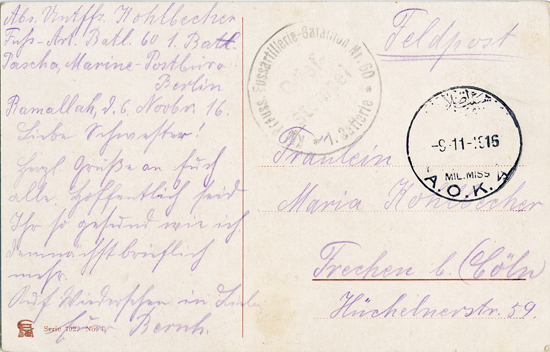 Abs. Untffz. Kohlbecher
Fuss-Art. Batl. 60 1. Batt.
Pascha, Marine-Postbüro
Berlin
Ramallah, d. 6. Novbr. 16.
Liebe Schwester!
Herzl. Grüße an Euch
alle. Hoffentlich seid
Ihr so gesund wie ich
demnächst brieflich
mehr.
Auf Wiedersehen in Liebe
Euer Bernh.
Serie 702
Feldpost
Kgl. Preuss. Fussartillerie-Bataillon Nr. 60
1. Batterie
-9-11-1916
MIL. MISS
A.O.K. 4
Fräulein
Maria Kohlbecher
Frechen b. Cöln
Hüchelnerstr. 59.